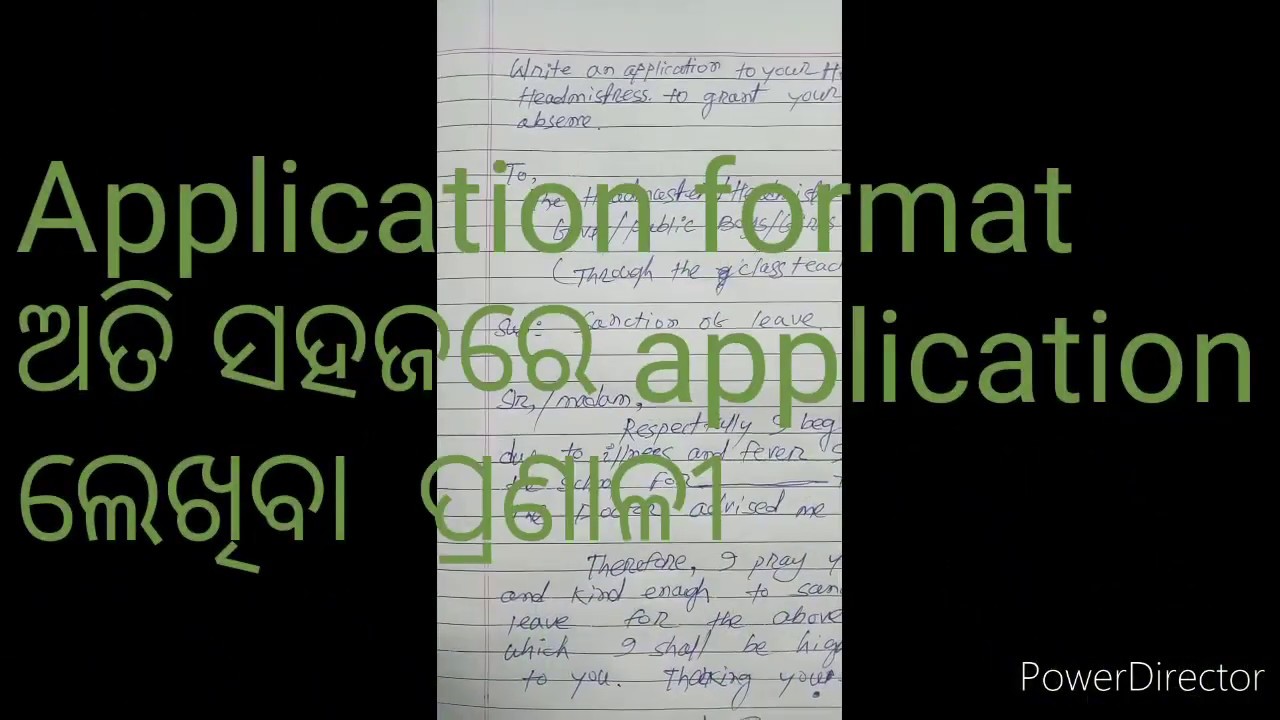 Write an application to your H
Headmistress. to grant your
absene.
To,
The Headmaster/Headmist
Govt/public Boys/Girls
(Through the class teac
Sub: Sanction of leave.
Sir,/madam,
Respectfully I beg
due to illness and fever S
the school for
The Doctor advised me
Therefore, I pray y
and kind enagh to san
leave for the above
which I shall be hig
to you. Thanking your
Application format
ଅତି ସହଜରେ application
ଲେଖିବା ପ୍ରଣାଳୀ
PowerDirector